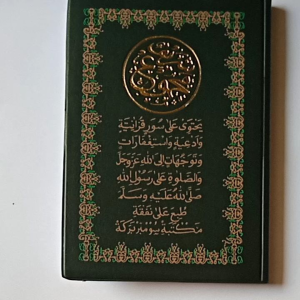 يحتوى على سور قرآنية
وأدعية واستغفارات
وتوجهات إلى الله عز وجل
والصلوة على رسول الله
صلى الله عليه وسلم
طبع على نفقة
مكتبة
بركة